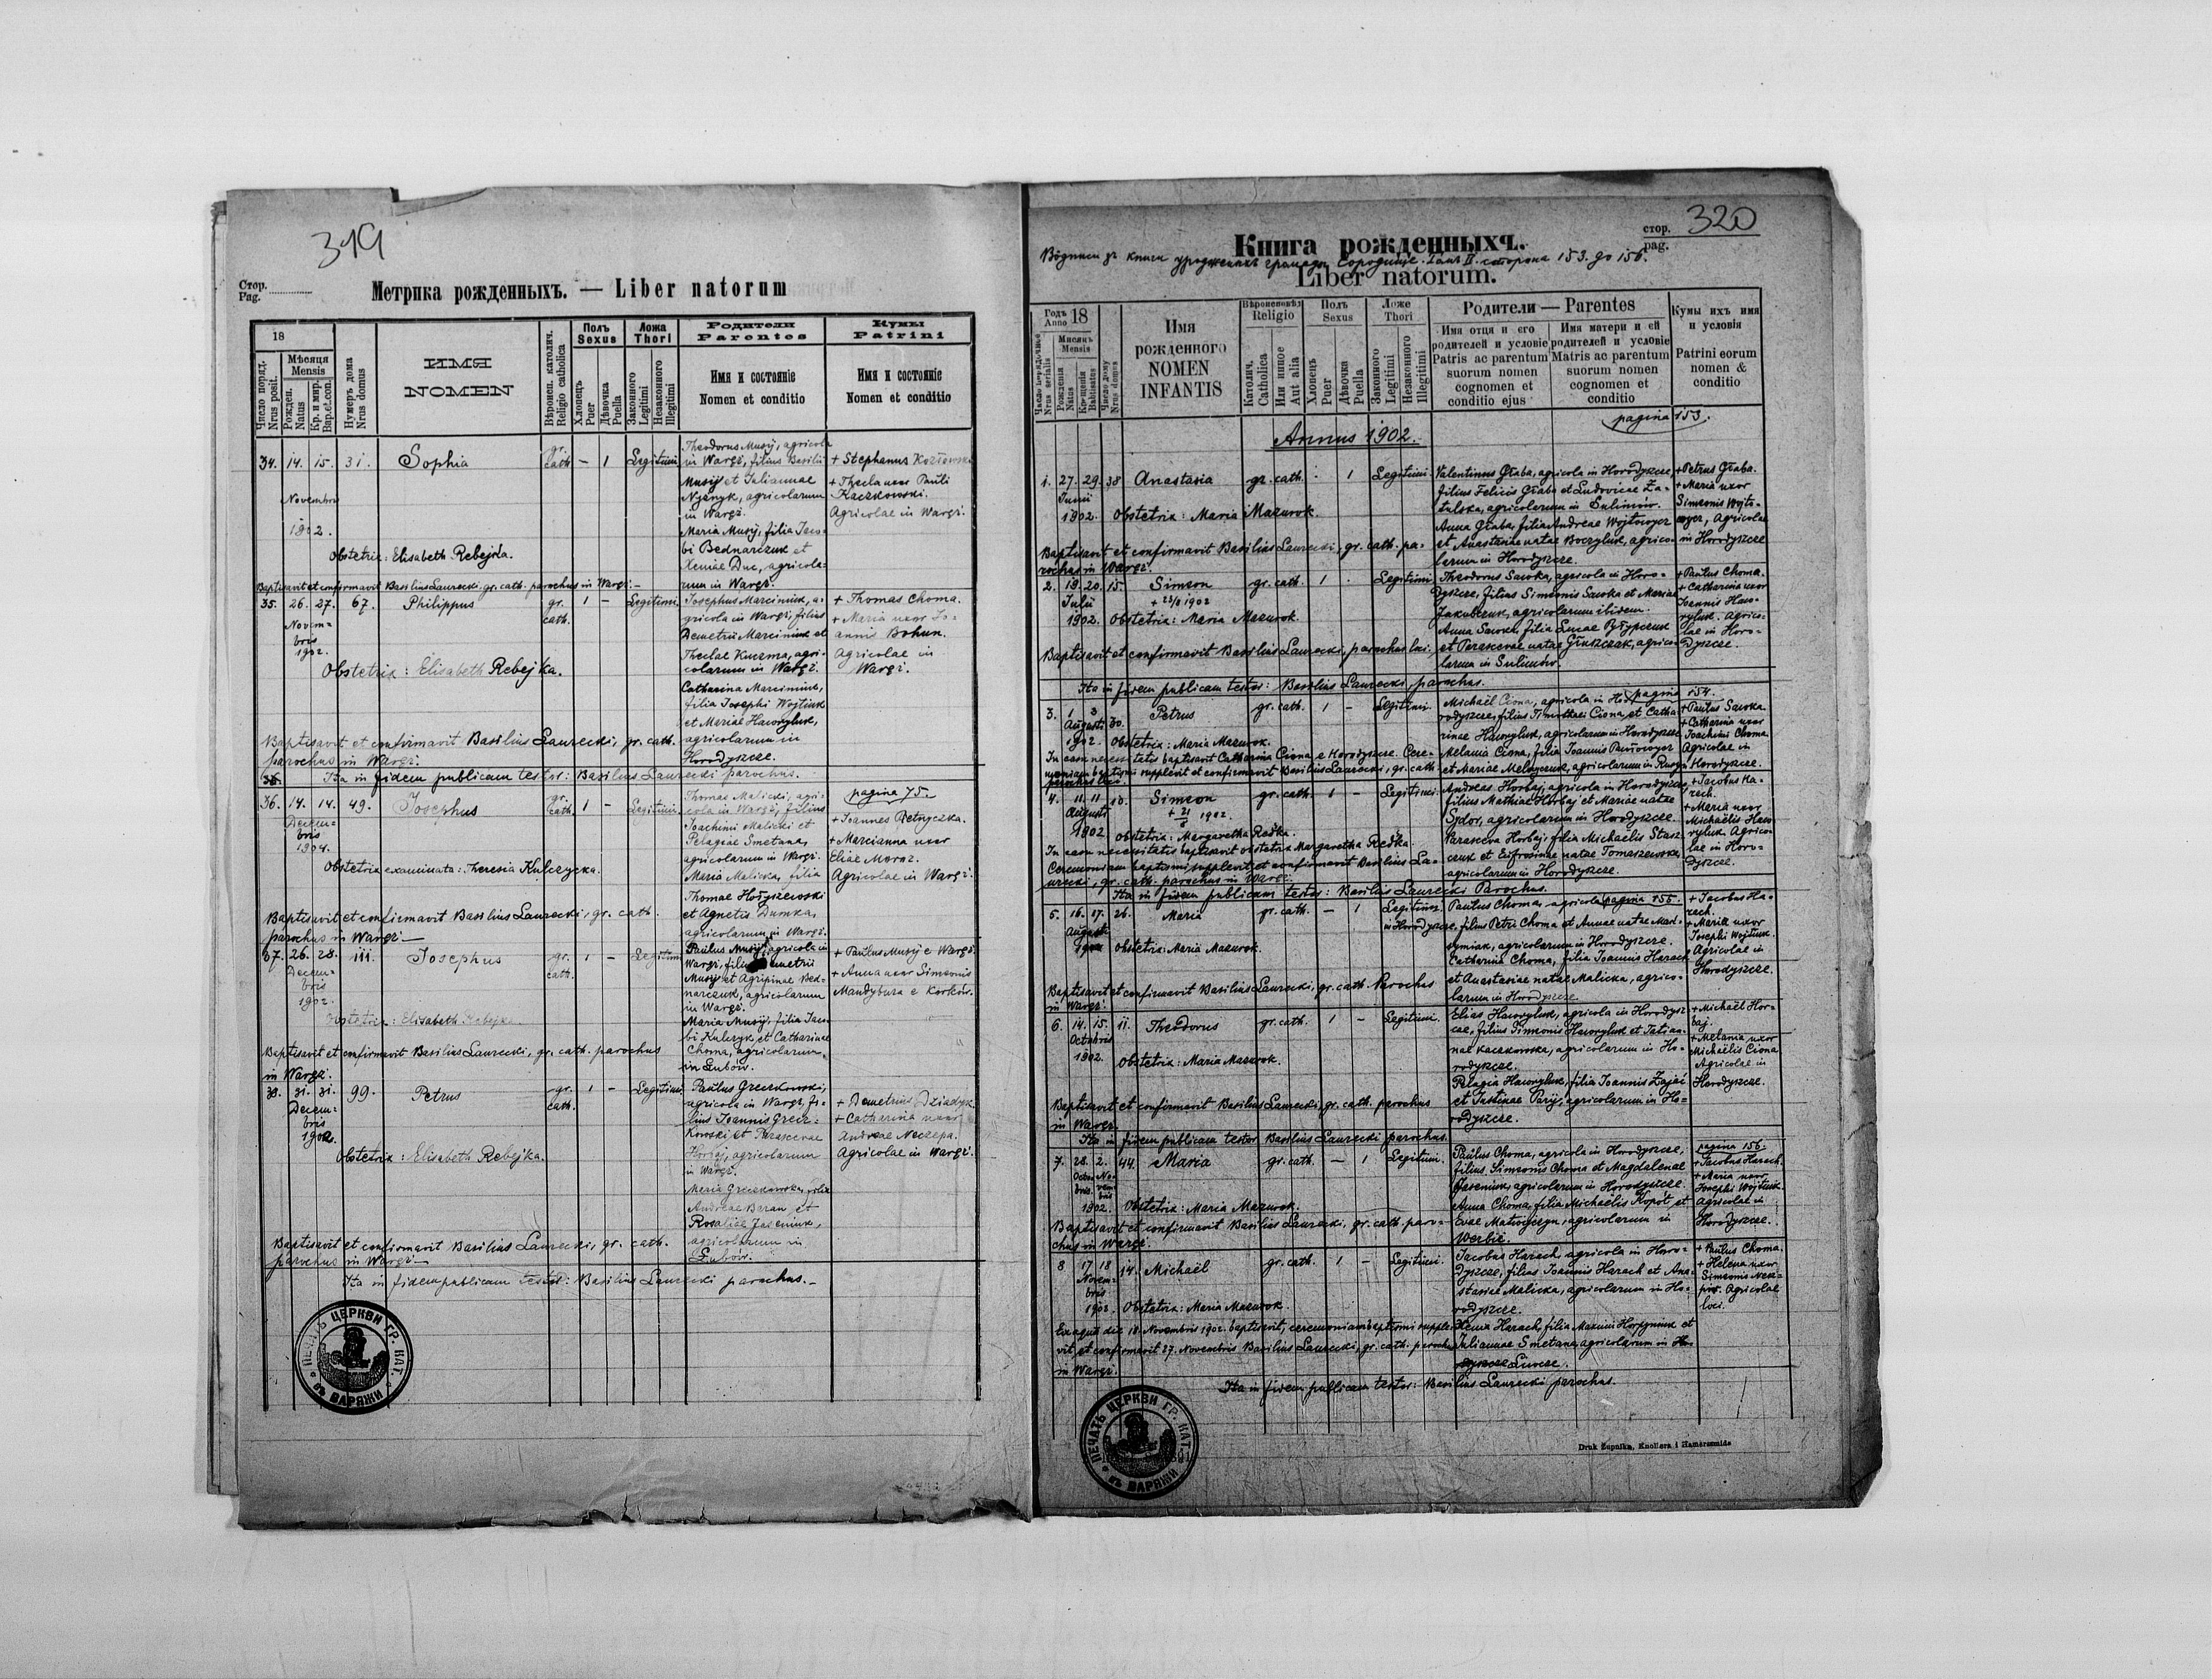 319
Стор.
Pag.
Метрика рожденныхъ. — Liber natorum
18
Число поряд.
Nrus posit.
Мѣсяця
Mensis
Рожден.
Natus
Кр. и мир.
Bap. et con.
Нумеръ дома
Nrus domus
ИМЯ
NOMEN
Вѣроисп. католич.
Religio catholica
Полъ
Sexus
Хлопецъ
Puer
Дѣвочка
Puella
Ложа
Thori
Законного
Legitimi
Незаконного
Illegitimi
Родители
Parentes
Имя и состоянiе
Nomen et conditio
Кумы
Patrini
Имя и состоянiе
Nomen et conditio
34. 14. 15. 31. Sophia gr. cath. — 1 Legitimi
Novembris
1902.
Theodorus Musij, agricola
in Waręż, filius Basilii
Musij et Julianae
agricolarum
in Waręż.
Maria Musij, filia Jaco-
bi Bednarczuk et
Xeniae Duc, agricola-
rum in Waręż.
+ Stephanus Kozłowski
+ Thecla uxor Pauli
Kaczkowski.
Agricolae in Waręż.
Obstetrix: Elisabeth Rebejka.
Baptisavit et confirmavit Basilius Laurecki, gr. cath. parochus in Waręż.
35. 26. 27. 67. Philippus gr. cath. 1 — Legitimi.
Novem-
bris
1902.
Josephus Marciniuk, a-
gricola in Waręż, filius
Demetrii Marciniuk et
Theclae Kuczma, agri-
colarum in Waręż.
Catharina Marciniuk,
filia Josephi Wojtiuk
et Mariae Hawryluk,
agricolarum in
Horodyszcze.
+ Thomas Choma.
+ Maria uxor Jo-
annis Bohun.
Agricolae in
Waręż.
Obstetrix: Elisabeth Rebejka.
Baptisavit et confirmavit Basilius Laurecki, gr. cath.
parochus in Waręż.
Ita in fidem publicam testor: Basilius Laurecki parochus.
36. 14. 14. 49. Josephus gr. cath. 1 — Legitimi.
Decem-
bris
Thomas Malicki, agri-
cola in Waręż, filius
Joachimi Malicki et
Pelagiae Smetana,
agricolarum in Waręż.
Maria Malicka, filia
Thomae Hołyszewski
et Agnetis Dumka,
agricolarum in Waręż.
pagina 75.
+ Joannes Petryczka.
+ Marcianna uxor
Eliae Moroz.
Agricolae in Waręż.
Obstetrix examinata: Theresia Kulczycka.
Baptisavit et confirmavit Basilius Laurecki, gr. cath.
parochus in Waręż.—
37. 26. 28. 111. Josephus gr. cath. 1 — Legitimi
Decem-
bris
1902.
Paulus Musij, agricola in
Waręż, filius Demetrii
Musij et Agripinae Bed-
narczuk, agricolarum
in Waręż.
Maria Musij, filia Jaco-
bi Kulczyk et Catharinae
Choma, agricolarum
in Łubów.
+ Paulus Musij e Waręż.
+ Anna uxor Simeonis
Mandybura e Korków.
Obstetrix: Elisabeth Rebejka.
Baptisavit et confirmavit Basilius Laurecki, gr. cath. parochus
in Waręż.
38. 31. 31. 99. Petrus gr. cath. 1 — Legitimi.
Decem-
bris
1902.
Paulus Greczkowski,
agricola in Waręż, fi-
lius Joannis Grecz-
kowski et Parascevae
Horbaj, agricolarum
in Waręż.
Maria Greczkowska, filia
Andreae Baran et
Rosaliae Jaseniuk,
agricolarum in
Łubów.
+ Demetrius Dziadyk
+ Catharina uxor
Andreae Neczepa.
Agricolae in Waręż.
Obstetrix: Elisabeth Rebejka.
Baptisavit et confirmavit Basilius Laurecki, gr. cath.
parochus in Waręż—
Ita in fidem publicam testor: Basilius Laurecki parochus.—
ПЕЧАТЬ ЦЕРКВИ ГР. КАТ. въ ВАРЯЖИ
стор.
pag.
320
Книга рожденныхъ.
Liber natorum.
сторона 153. до 156.
Годъ
Anno 18
Число порядочное
Nrus serialis
Мисяць
Mensis
Рожденія
Natus
Крещенія
Baptisatus
Число дому
Nrus domus
Имя
рожденного
NOMEN
INFANTIS
Вѣроисповѣд.
Religio
Католич.
Catholica
Или инное
Aut alia
Полъ
Sexus
Хлопецъ
Puer
Дѣвочка
Puella
Ложе
Thori
Законного
Legitimi
Незаконного
Illegitimi
Родители — Parentes
Имя отця и его
родителей и условіе
Patris ac parentum
suorum nomen
cognomen et
conditio ejus
Имя матери и ей
родителей и условіе
Matris ac parentum
suorum nomen
cognomen et
conditio
Кумы ихъ имя
и условія
Patrini eorum
nomen &
conditio
Annus 1902.
pagina 153.
1. 27. 29. 38 Anastasia gr. cath. . 1 Legitimi.
Junii
1902. Obstetrix: Maria Mazurok.
Valentinus Graba, agricola in Horodyszcze,
filius Felicis Graba et Ludovicae Za-
tulska, agricolarum in Sulimów.
Anna Graba, filia Andreae Wojtowycz
et Anastasiae natae Boczyluk, agrico-
larum in Horodyszcze.
+ Petrus Graba.
+ Maria uxor
Simeonis Wojto-
wycz, Agricolae
in Horodyszcze
Baptisavit et confirmavit Basilius Laurecki, gr. cath. pa-
rochus in Waręż.
2. 19. 20. 15. Simeon gr. cath. 1 . Legitimi
Julii
1902. Obstetrix: Maria Mazurok.
Theodorus Sawka, agricola in Horo-
dyszcze, filius Simeonis Sawka et Mariae
Jakubczuk, agricolarum ibidem.
Anna Sawka, filia Lucae Pyłypczuk
et Parascevae natae Gruszczak, agrico-
larum in Sulimów.
+ Paulus Choma.
+ Catharina uxor
Joannis Haw-
ryluk. Agrico-
lae in Horo-
dyszcze.
Baptisavit et confirmavit Basilius Laurecki, parochus loci.
Ita in fidem publicam testor: Basilius Laurecki parochus.
pagina 154.
3. 1 3 30. Petrus gr. cath. 1 — Legitimi.
Augusti
1902. Obstetrix: Maria Mazurok.
Michaël Ciona, agricola in Ho-
rodyszcze, filius Timothei Ciona et Catha-
rinae Hawryluk, agricolarum in Horodyszcze
Melania Ciona, filia Joannis
et Mariae agricolarum in
+ Paulus Sawka
+ Catharina uxor
Joachimi Choma
Agricolae in
Horodyszcze.
In casu necessitatis baptisavit Catharina Ciona e Horodyszcze. Cere-
moniam baptismi supplevit et confirmavit Basilius Laurecki, gr. cath.
parochus loci.
4. 11. 11 10. Simeon gr. cath. 1 — Legitimi.
Augusti
1902 Obstetrix: Margaretha Redka.
Andreas Horbaj, agricola in Horodyszcze,
filius Mathiae Horbaj et Mariae natae
Sydor, agricolarum in Horodyszcze
Parasceva Horbaj, filia Michaëlis Stasz-
czuk et Eufrosinae natae Tomaszewska,
agricolarum in Horodyszcze.
+ Jacobus Ha-
rach.
+ Maria uxor
Michaëlis Haw-
ryluk. Agrico-
lae in Horo-
dyszcze.
In casu necessitatis baptisavit obstetrix Margaretha Redka.
Ceremoniam baptismi supplevit et confirmavit Basilius La-
urecki, gr. cath. parochus in Waręż.
Ita in fidem publicam testor: Basilius Laurecki Parochus.
pagina 155.
5. 16. 17. 26. Maria gr. cath. — 1 Legitimi.
Augusti
1902 Obstetrix: Maria Mazurok.
Paulus Choma, agricola
in Horodyszcze, filius Petri Choma et Annae natae
agricolarum in Horodyszcze.
Catharina Choma, filia Joannis Harach
et Anastasiae natae Malicka, agrico-
larum in Horodyszcze.
+ Jacobus Ha-
rach.
+ Maria uxor
Josephi Wojtiuk.
Agricolae in
Horodyszcze.
Baptisavit et confirmavit Basilius Laurecki, gr. cath. Parochus
in Waręż.
6. 14. 15. 11. Theodorus gr. cath. 1 — Legitimi.
Octobris
1902. Obstetrix: Maria Mazurok.
Elias Hawryluk, agricola in Horodysz-
cze, filius Simeonis Hawryluk et Tatian-
nae Kaczkowska, agricolarum in Ho-
rodyszcze.
Pelagia Hawryluk, filia Joannis Zajać
et Justinae Paryj, agricolarum in Ho-
rodyszcze.
+ Michaël Hor-
baj.
+ Melania uxor
Michaëlis Ciona
Agricolae in
Horodyszcze.
Baptisavit et confirmavit Basilius Laurecki, gr. cath. parochus
in Waręż.
Ita in fidem publicam testor Basilius Laurecki parochus.
pagina 156.
7. 28. 2. 44. Maria gr. cath. — 1 Legitimi.
Octo- No-
bris. vem-
bris
1902. Obstetrix: Maria Mazurok.
Paulus Choma, agricola in Horodyszcze,
filius Simeonis Choma et Magdalenae
Jaseniuk, agricolarum in Horodyszcze.
Anna Choma, filia Michaëlis Kopót et
Evae agricolarum in
Werbie.
+ Jacobus Harach.
+ Maria uxor
Josephi Wojtiuk.
Agricolae in
Horodyszcze.
Baptisavit et confirmavit Basilius Laurecki, gr. cath. paro-
chus in Waręż.
8 17 18 14. Michaël gr. cath. 1 — Legitimi.
Novem-
bris
1902. Obstetrix: Maria Mazurok.
Jacobus Harach, agricola in Horo-
dyszcze, filius Joannis Harach et Ana-
stasiae Malicka, agricolarum in Ho-
rodyszcze.
Xenia Harach, filia Maximi et
Julianae Smetana, agricolarum in
Liwcze.
+ Paulus Choma.
+ Helena uxor
Simeonis
Agricolae
loci.
die 18. Novembris 1902. baptisavit, ceremoniam baptismi supple-
vit et confirmavit 27. Novembris Basilius Laurecki, gr. cath. parochus
in Waręż.
Ita in fidem publicam testor: Basilius Laurecki parochus.
ПЕЧАТЬ ЦЕРКВИ ГР. КАТ. въ ВАРЯЖИ
Druk Żupnika, Knollera i Hamerszmida